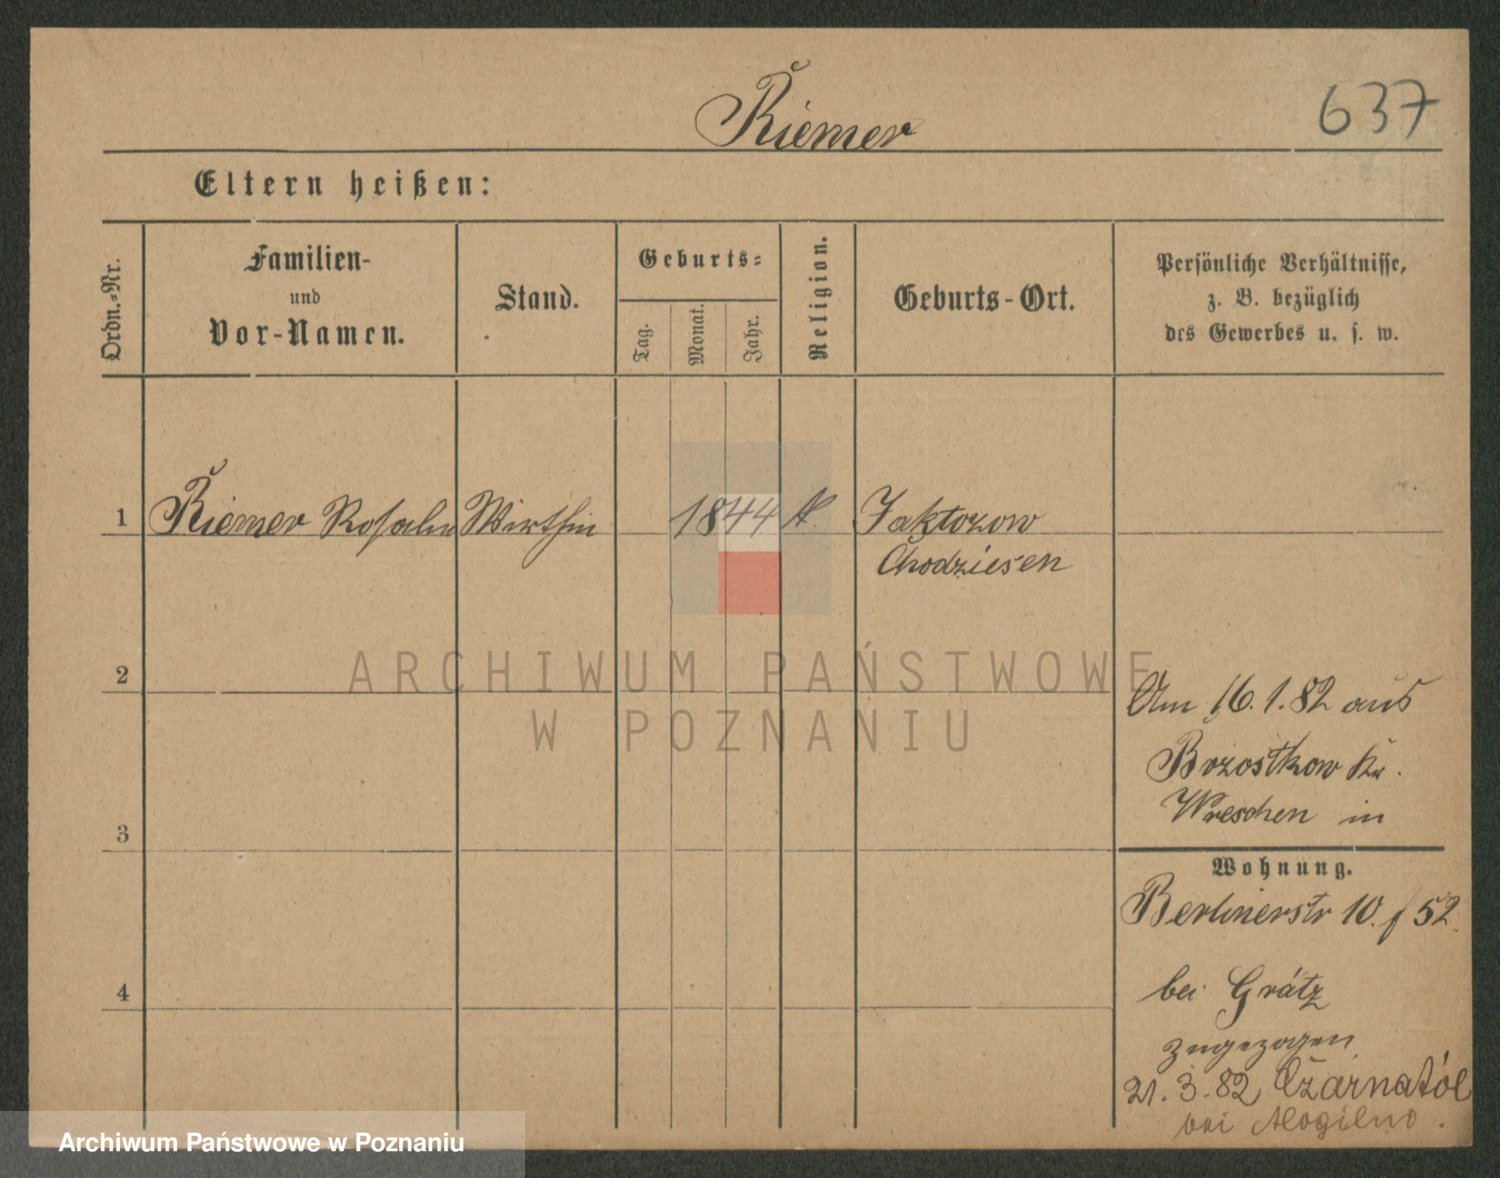 Riemer
637
Eltern heißen:
Ordn.-Nr.
Familien-
und
Vor-Namen.
Stand.
Geburts-
Tag.
Monat.
Jahr.
Religion.
Geburts-Ort.
Persönliche Verhältnisse,
z. B. bezüglich
des Gewerbes u. s. w.
1 Riemer Rosalie Wirthin 1844 k. Jaktorow
Chodziesen
2
3
4
Am 16.1.82 aus
Brzostkow Kr.
Wreschen in
Wohnung.
Berlinerstr 10. f 52.
bei Grätz
zugezogen
21.3.82 Czarnatól
bei Mogilno.
ARCHIWUM PAŃSTWOWE
W POZNANIU
Archiwum Państwowe w Poznaniu